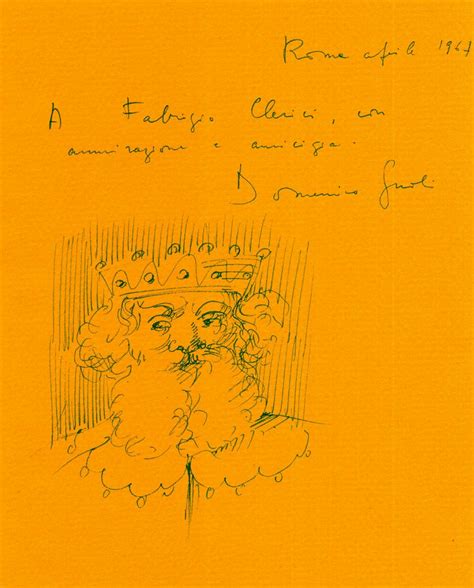 Roma aprile 1967
A Fabrizio Clerici, con
ammirazione e amicizia.
Domenico Gnoli